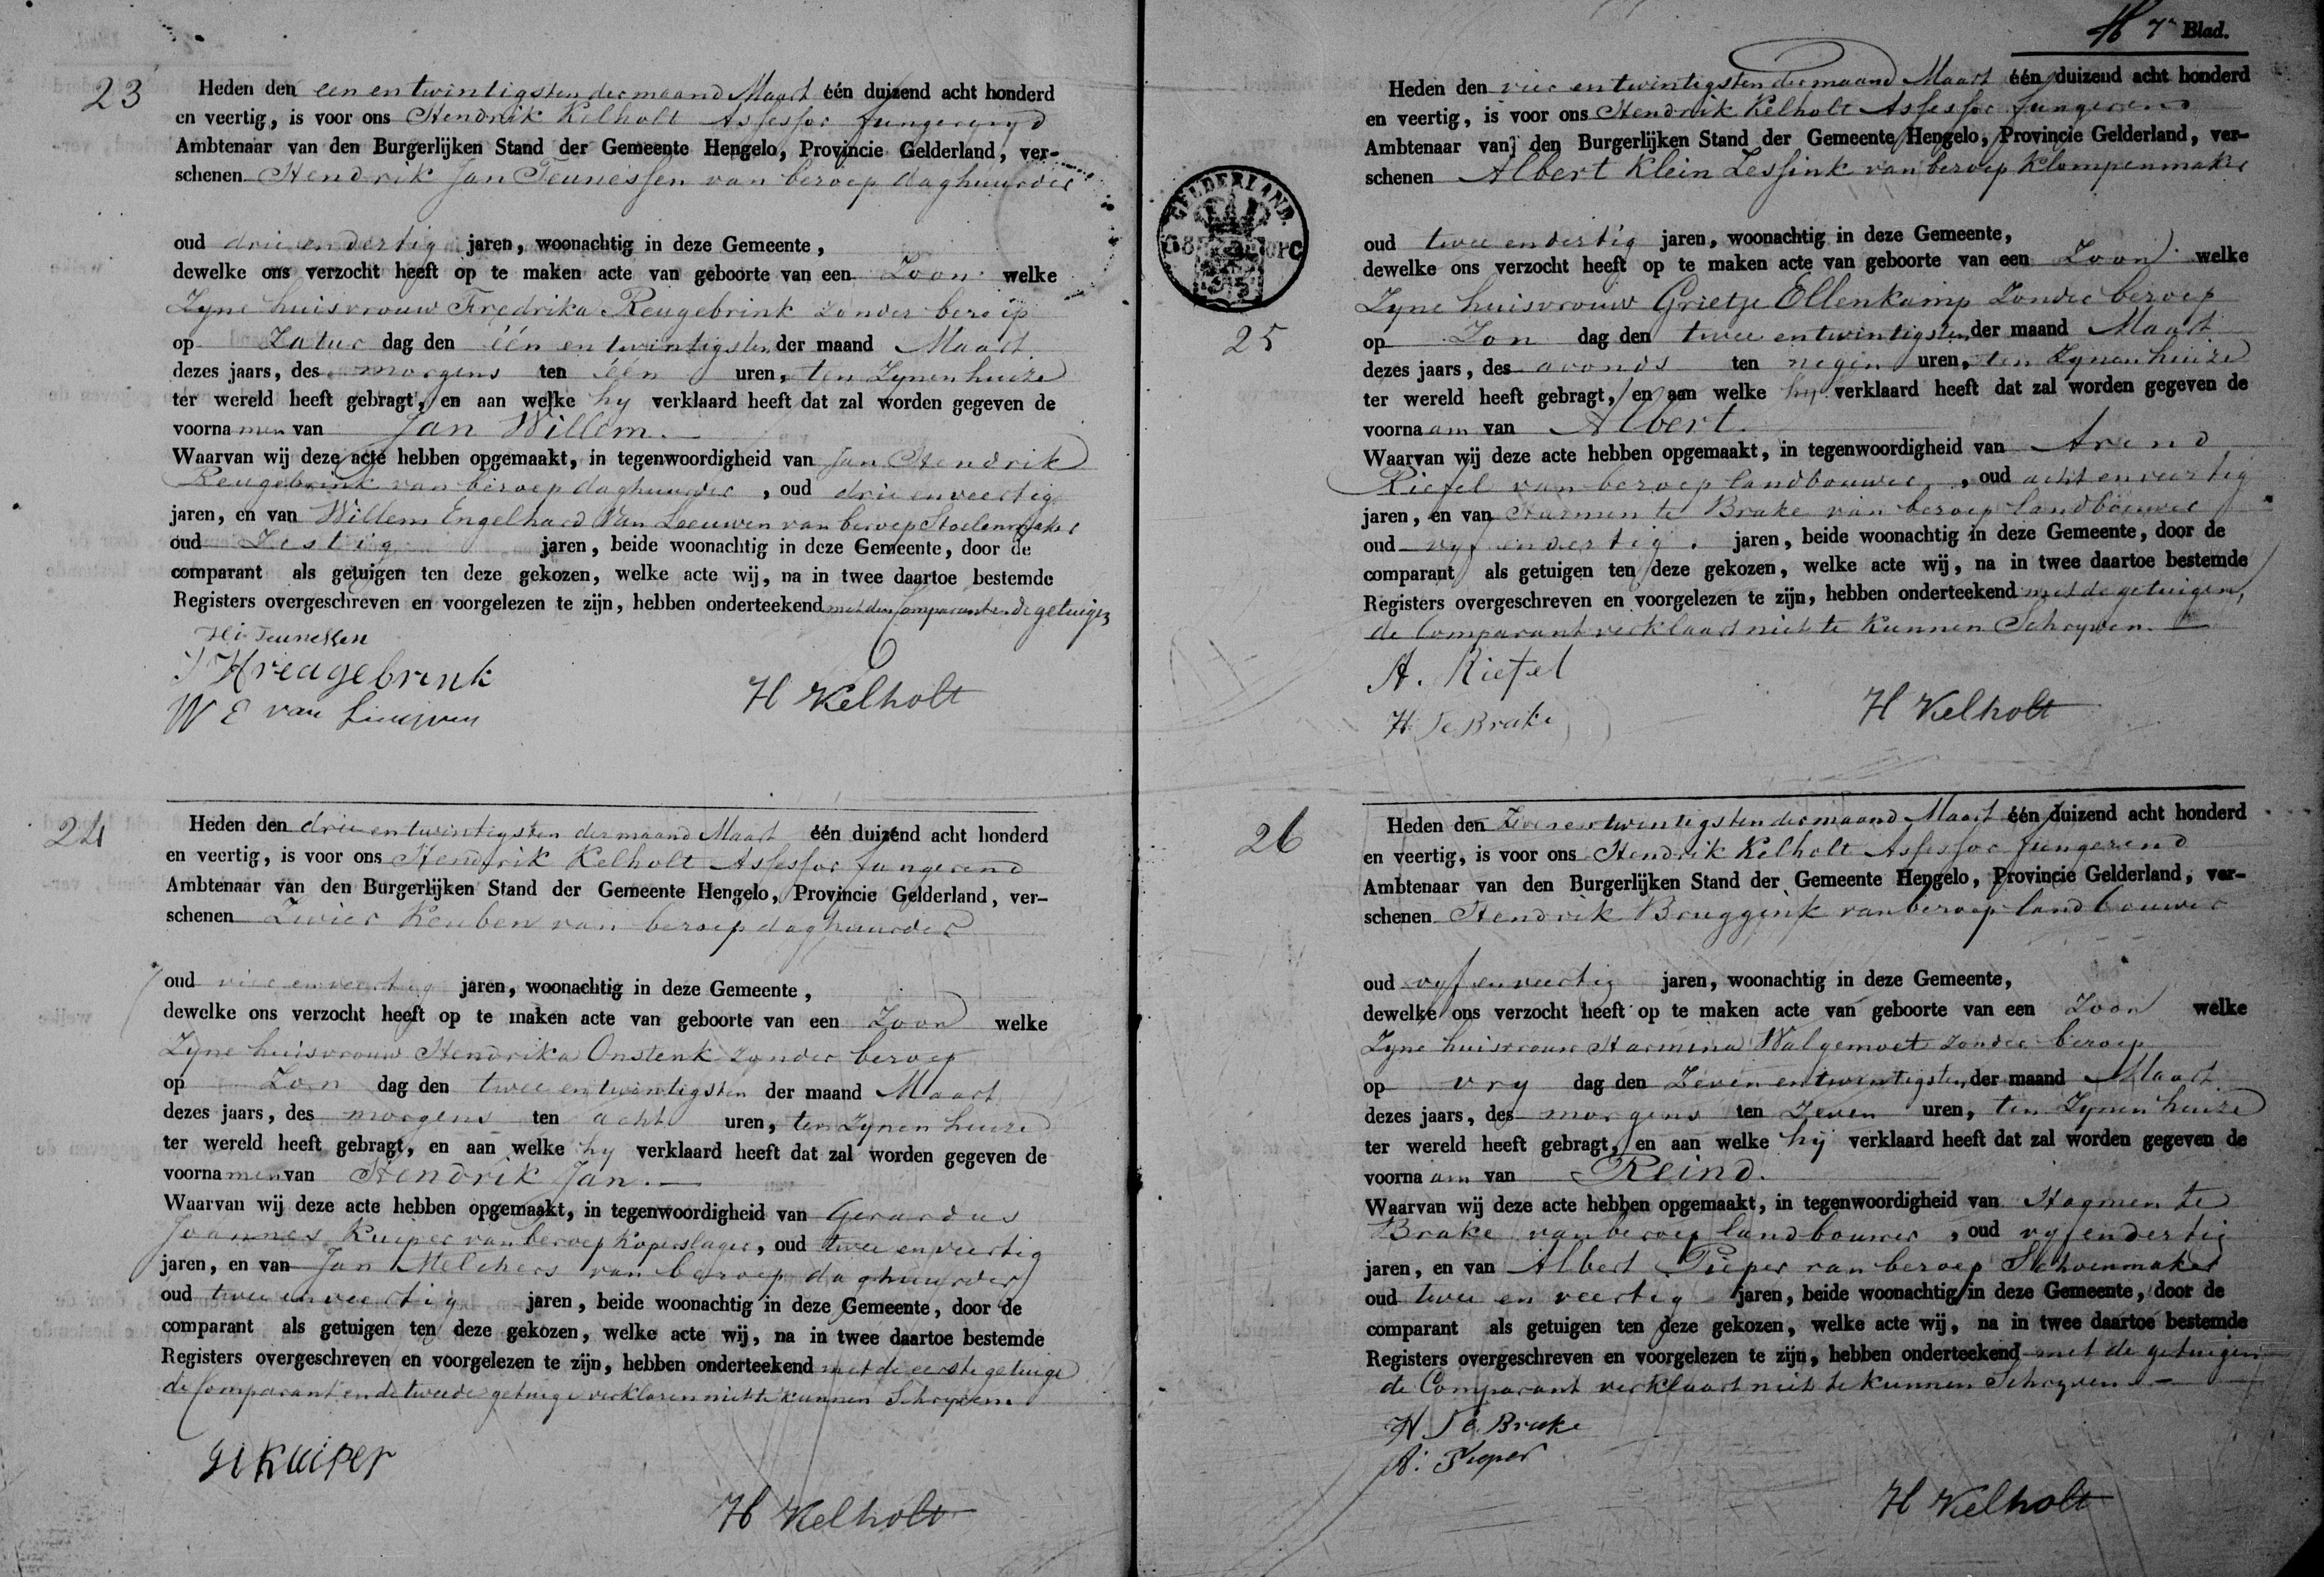 23
Heden den een en twintigsten der maand Maart één duizend acht honderd
en veertig, is voor ons Hendrik Kelholt Assessor fungerend
Ambtenaar van den Burgerlijken Stand der Gemeente Hengelo, Provincie Gelderland, ver-
schenen Hendrik Jan Teunessen van beroep daghuurder
oud drie en dertig jaren, woonachtig in deze Gemeente,
dewelke ons verzocht heeft op te maken acte van geboorte van een Zoon welke
Zyne huisvrouw Fredrika Reugebrink zonder beroep
op Zatur dag den één en twintigsten der maand Maart
dezes jaars, des morgens ten één uren, ten Zynen huize
ter wereld heeft gebragt, en aan welke hy verklaard heeft dat zal worden gegeven de
voornamen van Jan Willem.
Waarvan wij deze acte hebben opgemaakt, in tegenwoordigheid van Jan Hendrik
Reugebrink van beroep daghuurder, oud drie en veertig
jaren, en van Willem Engelhard Van Leeuwen van beroep Stoelenmaker
oud Zestig jaren, beide woonachtig in deze Gemeente, door de
comparant als getuigen ten deze gekozen, welke acte wij, na in twee daartoe bestemde
Registers overgeschreven en voorgelezen te zijn, hebben onderteekend met den Comparant en de getuigen
Teunessen
W E van
H Kelholt
24
Heden den drie en twintigsten der maand Maart één duizend acht honderd
en veertig, is voor ons Hendrik Kelholt Assessor fungerend
Ambtenaar van den Burgerlijken Stand der Gemeente Hengelo, Provincie Gelderland, ver-
schenen Zwier Keuben van beroep daghuurder
oud vier en veertig jaren, woonachtig in deze Gemeente,
dewelke ons verzocht heeft op te maken acte van geboorte van een Zoon welke
Zyne huisvrouw Hendrika Onstenk zonder beroep
op Zon dag den twee en twintigsten der maand Maart
dezes jaars, des morgens ten acht uren, ten Zynen huize
ter wereld heeft gebragt, en aan welke hy verklaard heeft dat zal worden gegeven de
voornamen van Hendrik Jan.
Waarvan wij deze acte hebben opgemaakt, in tegenwoordigheid van Gerardus
Joannes Kuiper van beroep Koperslager, oud twee en veertig
jaren, en van Jan Melchers van beroep daghuurder
oud twee en veertig jaren, beide woonachtig in deze Gemeente, door de
comparant als getuigen ten deze gekozen, welke acte wij, na in twee daartoe bestemde
Registers overgeschreven en voorgelezen te zijn, hebben onderteekend met de eerste getuige
de Comparant en de tweede getuige verklaren niet te kunnen Schryven.
Kuiper
H Kelholt
7e Blad.
GELDERLAND.
25
Heden den vier en twintigsten der maand Maart één duizend acht honderd
en veertig, is voor ons Hendrik Kelholt Assessor fungerend
Ambtenaar van den Burgerlijken Stand der Gemeente Hengelo, Provincie Gelderland, ver-
schenen Albert Klein Lessink van beroep Klompenmaker
oud twee en dertig jaren, woonachtig in deze Gemeente,
dewelke ons verzocht heeft op te maken acte van geboorte van een Zoon welke
Zyne huisvrouw Grietje Ellenkamp Zonder beroep
op Zon dag den twee en twintigsten der maand Maart
dezes jaars, des avonds ten negen uren, ten Zynen huize
ter wereld heeft gebragt, en aan welke hy verklaard heeft dat zal worden gegeven de
voornaam van Albert.
Waarvan wij deze acte hebben opgemaakt, in tegenwoordigheid van Arend
Riefel van beroep landbouwer, oud acht en veertig
jaren, en van Harmen te Brake van beroep landbouwer
oud vyf en dertig jaren, beide woonachtig in deze Gemeente, door de
comparant als getuigen ten deze gekozen, welke acte wij, na in twee daartoe bestemde
Registers overgeschreven en voorgelezen te zijn, hebben onderteekend met de getuigen,
de Comparant verklaart niet te kunnen Schryven.
A. Riefel
H. Te Brake
H Kelholt
26
Heden den Zeven en twintigsten der maand Maart één duizend acht honderd
en veertig, is voor ons Hendrik Kelholt Assessor fungerend
Ambtenaar van den Burgerlijken Stand der Gemeente Hengelo, Provincie Gelderland, ver-
schenen Hendrik Bruggink van beroep landbouwer
oud vyf en veertig jaren, woonachtig in deze Gemeente,
dewelke ons verzocht heeft op te maken acte van geboorte van een Zoon welke
Zyne huisvrouw Harmina Walgemoet zonder beroep
op vry dag den Zeven en twintigsten der maand Maart
dezes jaars, des morgens ten Zeven uren, ten Zynen huize
ter wereld heeft gebragt, en aan welke hij verklaard heeft dat zal worden gegeven de
voornaam van Reind.
Waarvan wij deze acte hebben opgemaakt, in tegenwoordigheid van Harmen te
Brake van beroep landbouwer, oud vyf en dertig
jaren, en van Albert Pieper van beroep Schoenmaker
oud twee en veertig jaren, beide woonachtig in deze Gemeente, door de
comparant als getuigen ten deze gekozen, welke acte wij, na in twee daartoe bestemde
Registers overgeschreven en voorgelezen te zijn, hebben onderteekend met de getuigen
de Comparant verklaart niet te kunnen Schryven
H. Te Brake
A: Pieper
H Kelholt